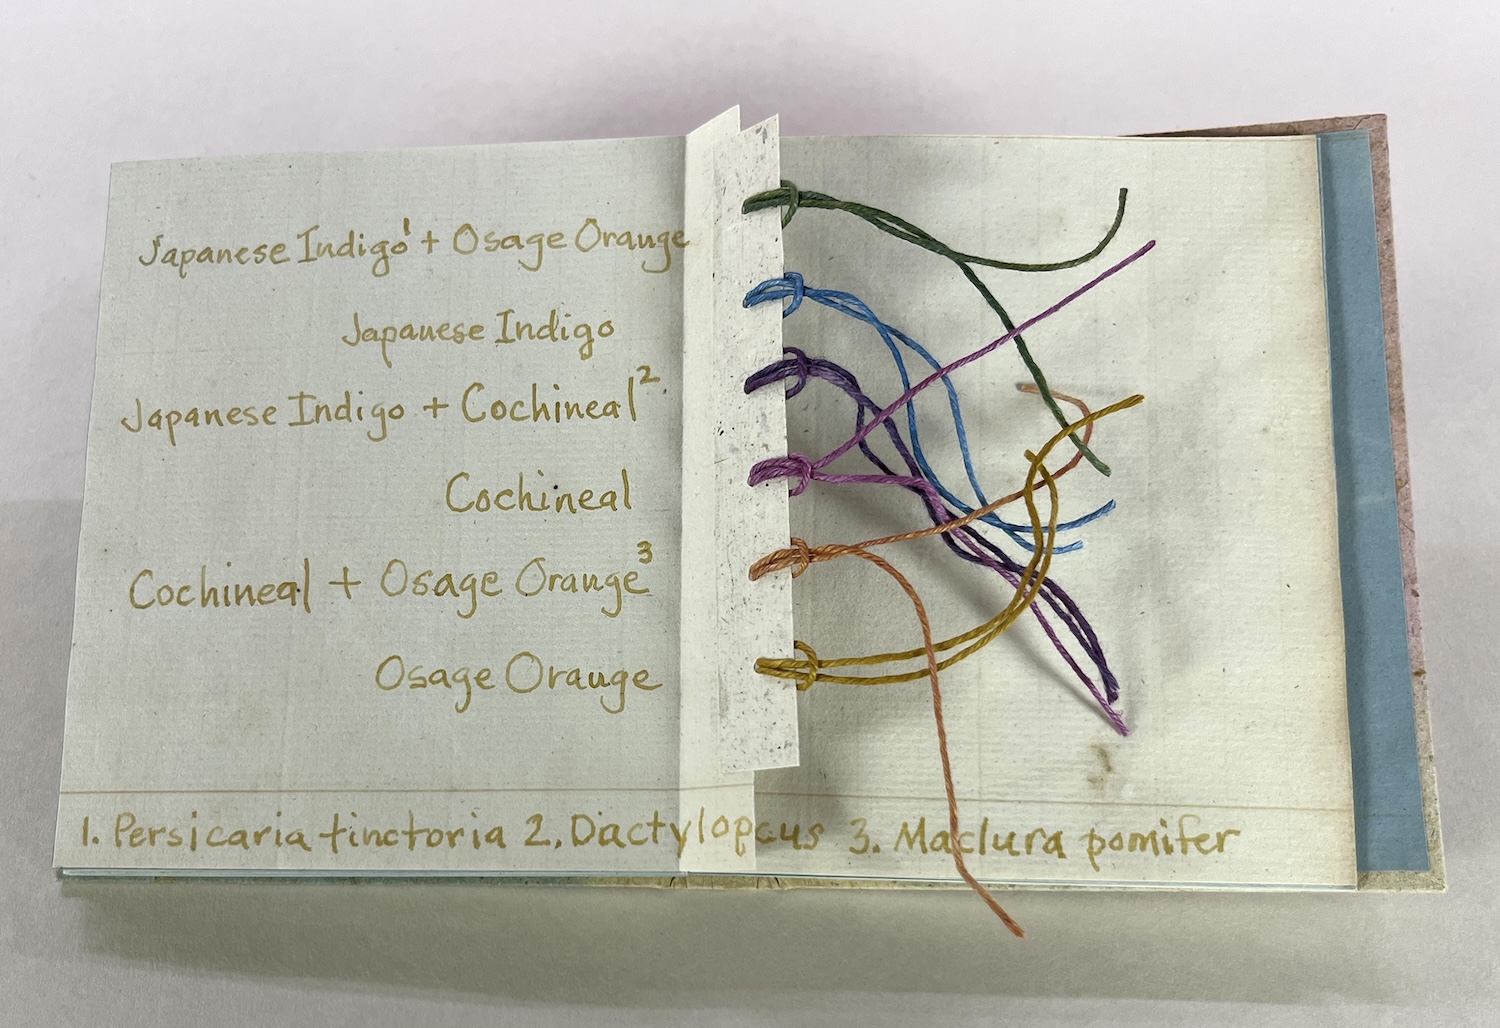 Japanese Indigo¹ + Osage Orange
Japanese Indigo
Japanese Indigo + Cochineal²
Cochineal
Cochineal + Osage Orange³
Osage Orange
1. Persicaria tinctoria 2. Dactylopcus 3. Maclura pomifer